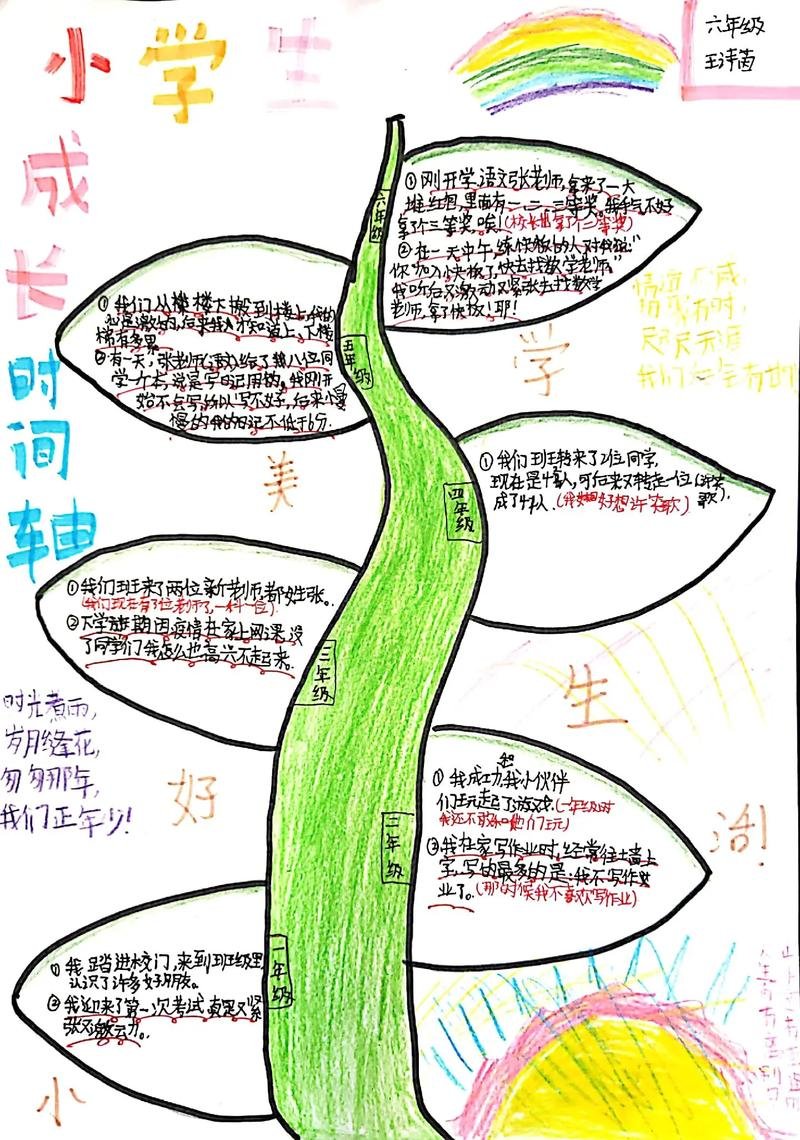 小学生
成长时间轴
六年级
王诗茵
六年级
①刚开学,语文张老师,拿来了一大
堆红包,里面有一、二、三等奖。我手气不好
拿了个三等奖,唉!(校长也拿了个三等奖)
②在一天中午,练快板的人对我说:“
你加入小快板了,快去找数学老师。”
我听后又激动又紧张去找数学
老师,拿了快板!耶!
五年级
①我们从楼下搬到楼上,
心是激动的,后来我才知道上、下楼
梯有多累。
②有一天,张老师(语文)给了第八位同
学一个本,说是写日记用的。我刚开
始不会写所以写不好,后来慢
慢的我的日记不低于6分.
学
四年级
①我们班转来了2位同学,
现在是48人,可后来又转走一位(许笑歌),
成了47人.(我好想许笑歌)
美
三年级
①我们班来了两位新老师,都姓张。
(我们现在有3位老师了,一科一位)
②下学期因疫情在家上网课,没
了同学们我怎么也高兴不起来.
生
时光煮雨,
岁月缝花,
匆匆那年,
我们正年少!
好
二年级
①我成功和我小伙伴
们玩起了游戏.(一年级时
我还不敢和他们玩)
②我在家写作业时,经常往墙上
写,写的最多的是:我不写作业
了.(那时候我不喜欢写作业)
活!
一年级
①我踏进校门,来到班级里
认识了许多好朋友。
②我迎来了第一次考试,真是又紧
张又激动。
小